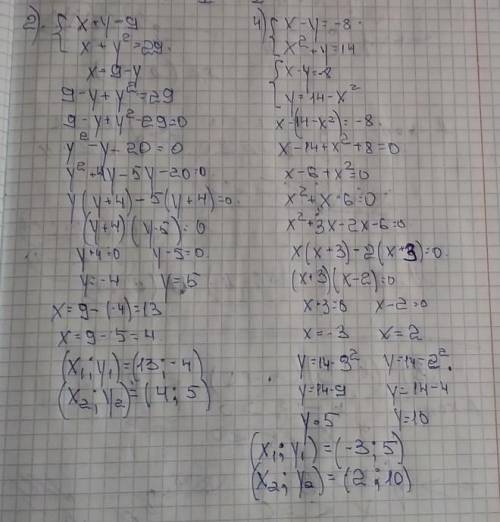 2) { x + y = 9
x + y² = 29.
x = 9 - y
9 - y + y² = 29
9 - y + y² - 29 = 0
y² - y - 20 = 0
y² + 4y - 5y - 20 = 0
y(y+4) - 5(y+4) = 0
(y+4)(y-5) = 0
y+4=0 y-5=0.
y=-4 y=5
x = 9 - (-4) = 13
x = 9 - 5 = 4
(x₁; y₁) = (13; -4)
(x₂; y₂) = (4; 5)
4) { x - y = -8
x² + y = 14
{ x - y = -8
y = 14 - x²
x - (14 - x²) = -8.
x - 14 + x² + 8 = 0
x - 6 + x² = 0
x² + x - 6 = 0
x² + 3x - 2x - 6 = 0
x(x+3) - 2(x+3) = 0.
(x+3)(x-2) = 0
x+3=0 x-2=0
x=-3 x=2
y=14-3² y=14-2².
y=14-9 y=14-4
y=5 y=10
(x₁; y₁) = (-3; 5)
(x₂; y₂) = (2; 10)